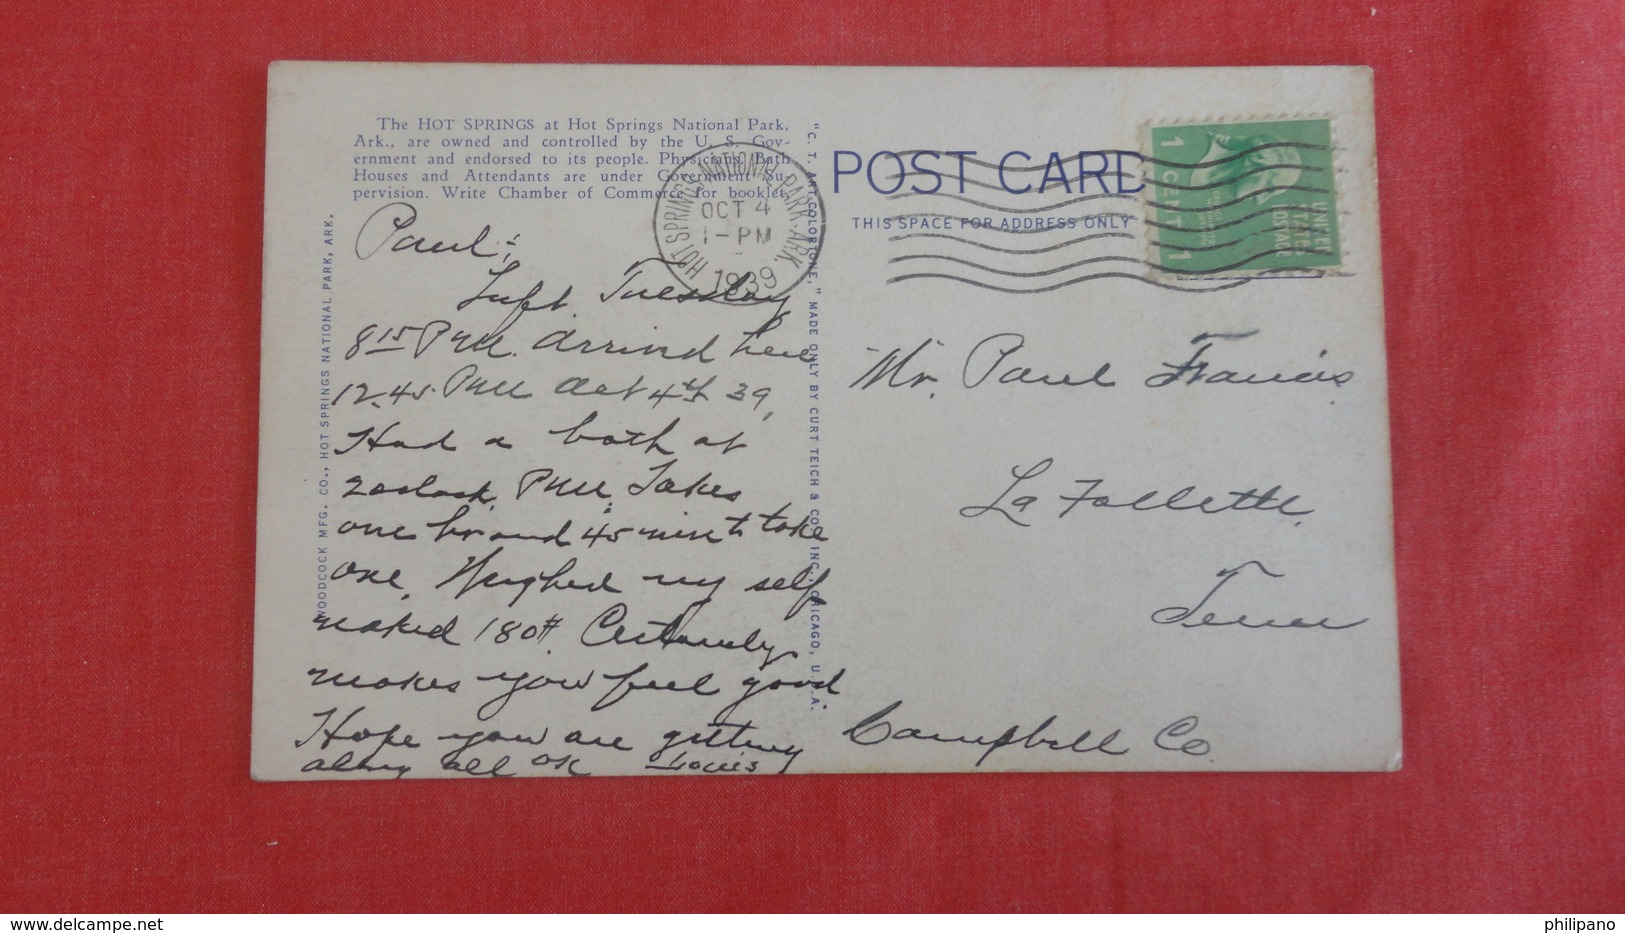 The HOT SPRINGS at Hot Springs National Park,
Ark., are owned and controlled by the U. S. Gov-
ernment and endorsed to its people. Physicians, Bath
Houses and Attendants are under Government Su-
pervision. Write Chamber of Commerce for booklet.
HOT SPRINGS NATIONAL PARK, ARK.
OCT 4
1-PM
1939
Paul:-
Left Tuesday
8 15 PM. arrived here
12.45 PM Oct 4th 39,
Had a bath at
2 oclock PM. Takes
one hr and 45 minets take
one. Weighed my self
naked 180#. Certainly
makes you feel good
Hope you are getting
along all OK Louis
WOODCOCK MFG. CO., HOT SPRINGS NATIONAL PARK, ARK.
"C. T. ART-COLORTONE," MADE ONLY BY CURT TEICH & CO., INC., CHICAGO, U.S.A.
POST CARD
THIS SPACE FOR ADDRESS ONLY
1 CENT 1
UNITED
STATES
POSTAGE
Mr. Paul Francis
La Follette.
Tenn
Campbell Co
philipano
delcampe.net